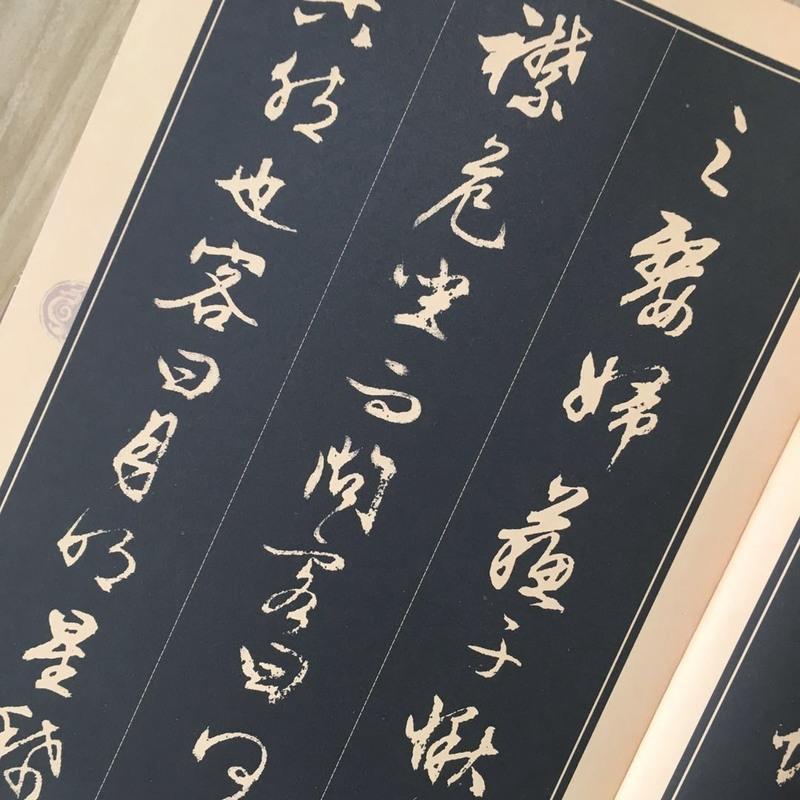 之嫠婦蘇子愀
襟危坐而問客曰何
其然也客曰月明星稀